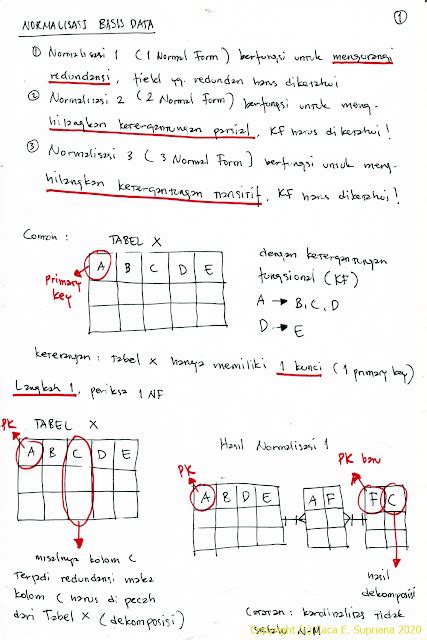 NORMALISASI BASIS DATA
1
① Normalisasi 1 (1 Normal Form) berfungsi untuk mengurangi
redundansi, field yg. redundan harus diketahui
② Normalisasi 2 (2 Normal Form) berfungsi untuk meng-
hilangkan ketergantungan parsial, KF harus diketahui!
③ Normalisasi 3 (3 Normal Form) berfungsi untuk meng-
hilangkan ketergantungan transitif, KF harus diketahui!
Contoh : TABEL X
A B C D E
primary
key
dengan ketergantungan
fungsional (KF)
A → B, C, D
D → E
keterangan : tabel x hanya memiliki 1 kunci (1 primary key)
Langkah 1, periksa 1 NF
PK TABEL X
A B C D E
misalnya kolom C
Terjadi redundansi maka
kolom C harus di pecah
dari Tabel X (dekomposisi)
Hasil Normalisasi 1
PK
PK baru
A B D E
A F
F C
hasil
dekomposisi
Catatan : kardinalitas tidak
selalu N-M
E. Supriana 2020